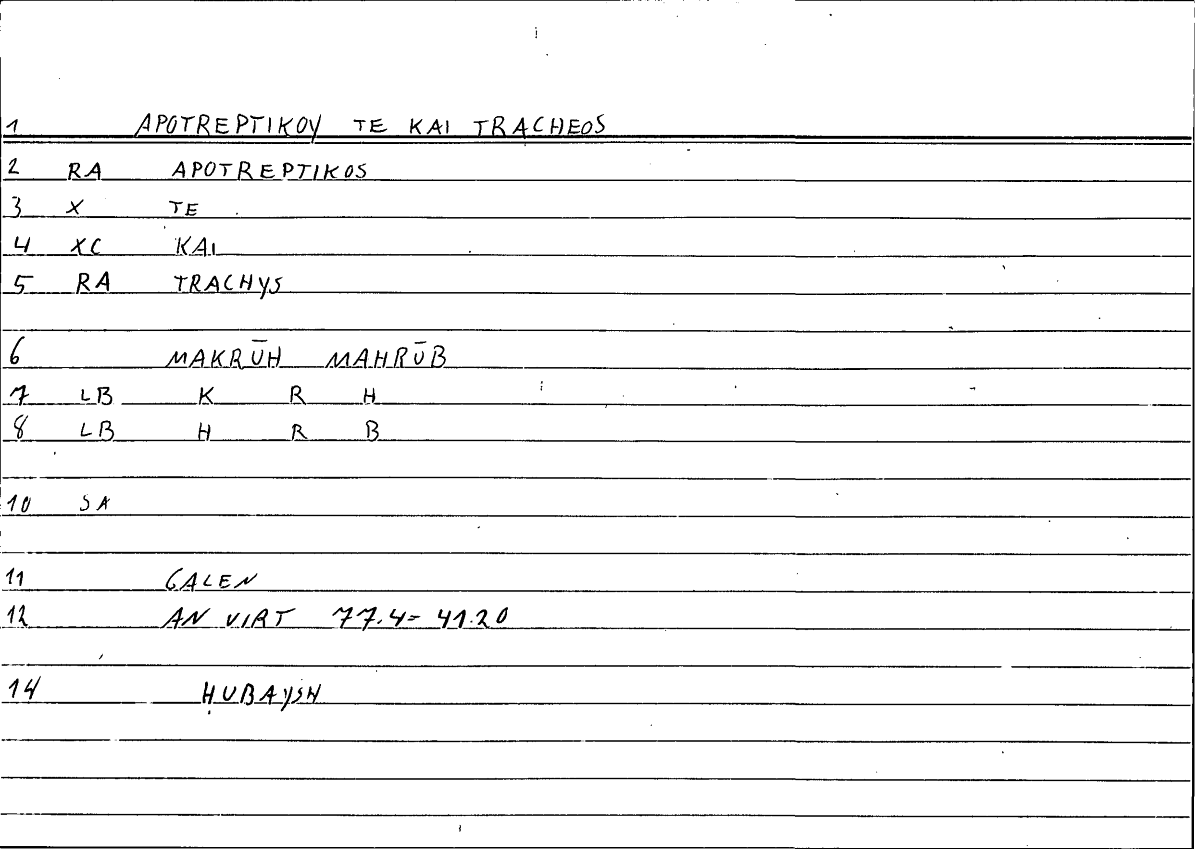 1 APOTREPTIKOY TE KAI TRACHEOS
2 RA APOTREPTIKOS
3 X TE
4 XC KAI
5 RA TRACHYS
6 MAKRŪH MAHRŪB
7 LB K R H
8 LB H R B
10 SA
11 GALEN
12 AN VIRT 77.4= 41.20
14 ḤUBAYSH